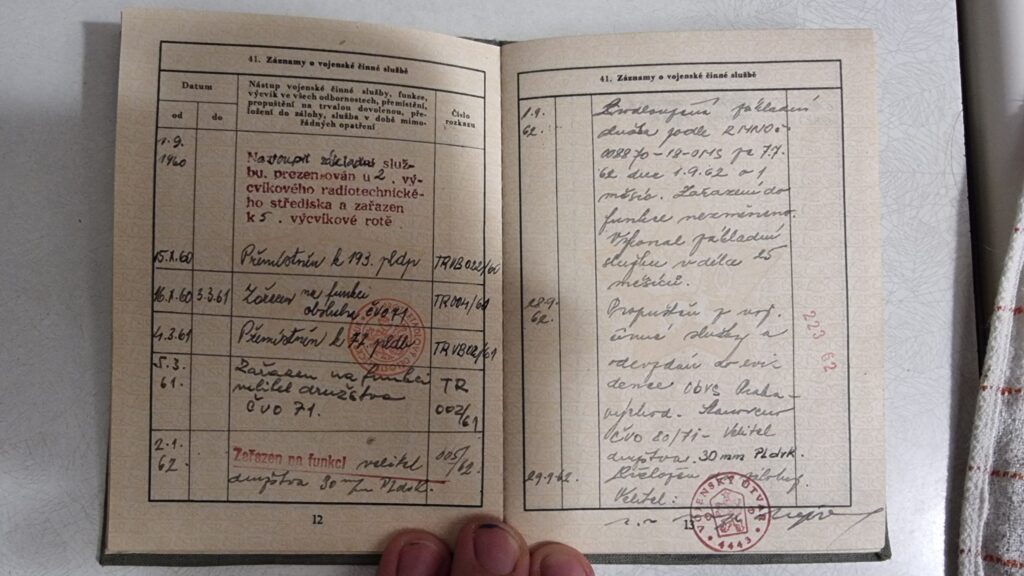 41. Záznamy o vojenské činné službě
Datum
od
do
Nástup vojenské činné služby, funkce,
výcvik ve všech odbornostech, přemístění,
propuštění na trvalou dovolenou, pře-
ložení do zálohy, služba v době mimo-
řádných opatření
Číslo
rozkazu
1.9.
1960
Nastoupil základní služ-
bu, prezentován u 2. vý-
cvikového radiotechnické-
ho střediska a zařazen
k 5. výcvikové rotě
15.X.60 Přemístněn k 193. pldp
16.X.60 3.3.61 Zařazen na funkci
obsluha ČVO 71
TR 004/60
4.3.61 Přemístněn k 77. pldp
5.3.
61.
Zařazen na funkci
velitel družstva
ČVO 71.
TR
002/61
2.1.
62
Zařazen na funkci velitel
družstva 30 m/m Pldvk.
005/
62.
12
41. Záznamy o vojenské činné službě
1.9.
62.
základní
služba podle RMNO č.
008870-18-OMS ze 7.7.
62 dne 1.9.62 o 1
měsíc. Zařazení do
funkce nezměněno.
Vykonal základní
službu v délce 25
měsíců.
28.9.
62.
Propuštěn z voj.
činné služby a
odevzdán do evi
dence OVS Praha-
východ. Stanoveno
ČVO 20/71 - Velitel
družstva 30 mm PLdvK.
223 62
29.9.62. Přeložen do zálohy.
Velitel:
VOJENSKÝ ÚTVAR
4443
13